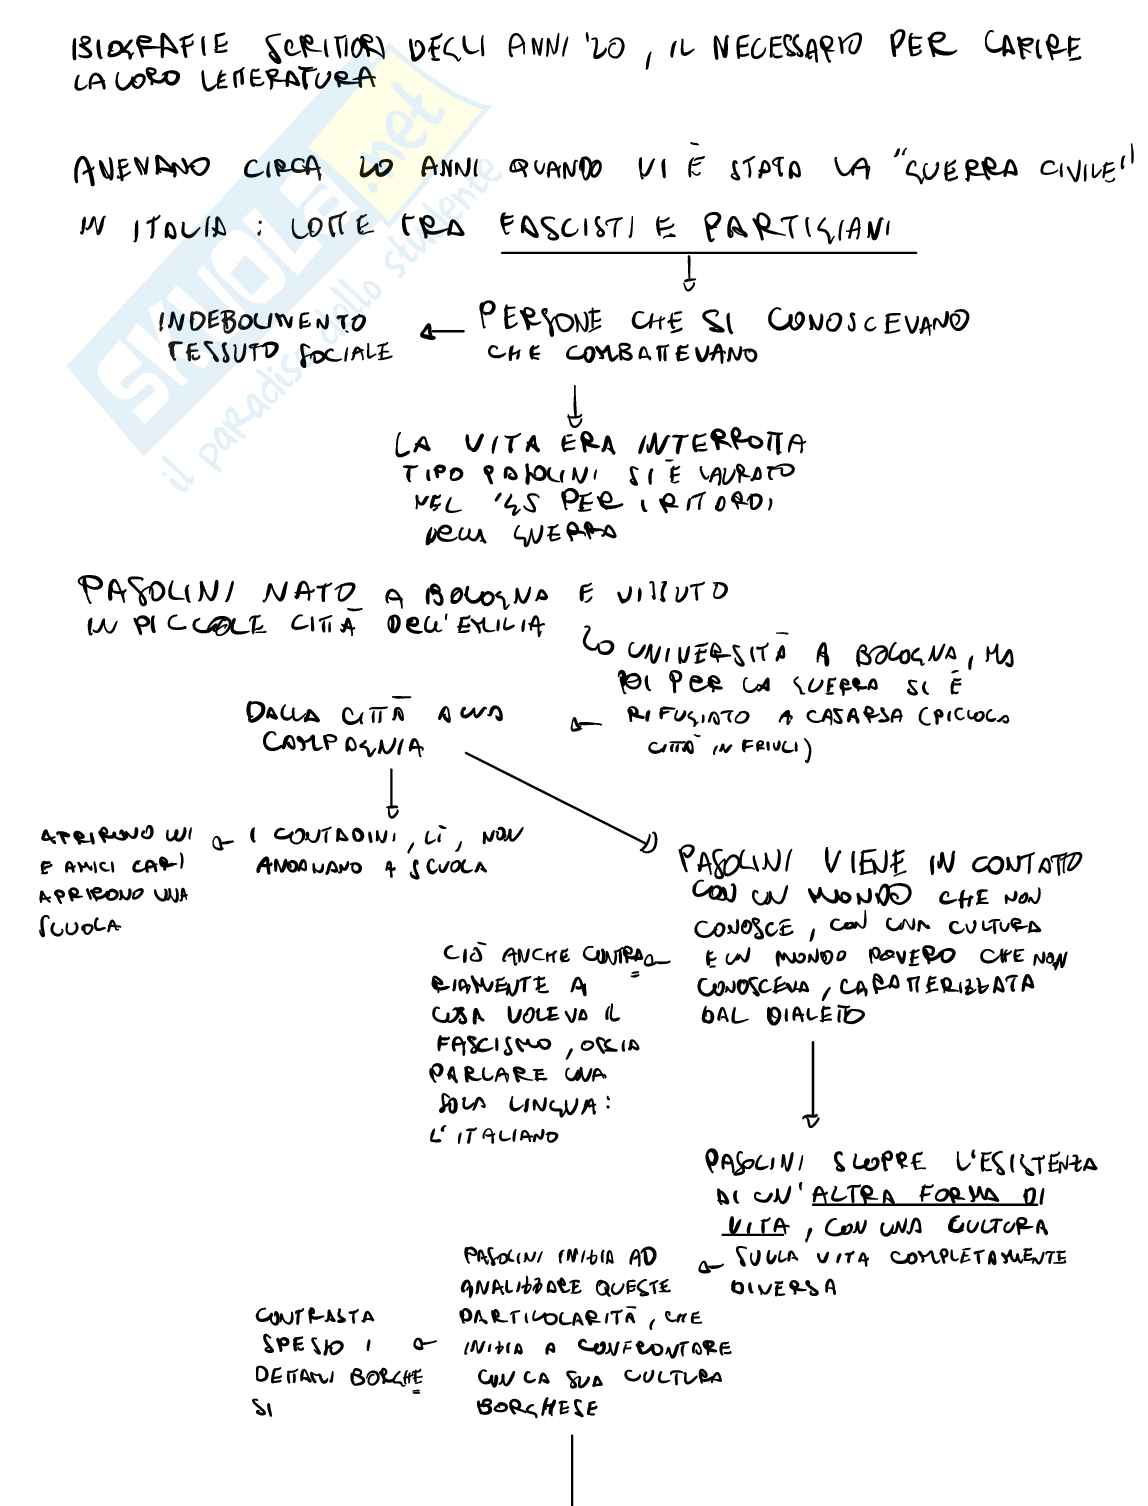 BIOGRAFIE SCRITTORI DEGLI ANNI '20, IL NECESSARIO PER CAPIRE
LA LORO LETTERATURA
AVEVANO CIRCA 20 ANNI QUANDO VI È STATA LA "GUERRA CIVILE"
IN ITALIA: LOTTE TRA FASCISTI E PARTIGIANI
PERSONE CHE SI CONOSCEVANO
CHE COMBATTEVANO
INDEBOLIMENTO
TESSUTO SOCIALE
LA VITA ERA INTERROTTA
TIPO PASOLINI SI È LAURATO
NEL '45 PER I RITARDI
DELLA GUERRA
PASOLINI NATO A BOLOGNA E VISSUTO
IN PICCOLE CITTÀ DELL'EMILIA
UNIVERSITÀ A BOLOGNA, MA
POI PER LA GUERRA SI È
RIFUGIATO A CASARSA (PICCOLA
CITTÀ IN FRIULI)
DALLA CITTÀ ALLA
CAMPAGNIA
I CONTADINI, LÌ, NON
ANDAVANO A SCUOLA
APRIRONO LUI
E AMICI CARI
APRIRONO UNA
SCUOLA
PASOLINI VIENE IN CONTATTO
CON UN MONDO CHE NON
CONOSCE, CON UNA CULTURA
E UN MONDO POVERO CHE NON
CONOSCEVA, CARATTERIZZATA
DAL DIALETTO
CIÒ ANCHE CONTRA=
RIAMENTE A
COSA VOLEVA IL
FASCISMO, OSSIA
PARLARE UNA
SOLA LINGUA:
L'ITALIANO
PASOLINI SCOPRE L'ESISTENZA
DI UN'ALTRA FORMA DI
VITA, CON UNA CULTURA
SULLA VITA COMPLETAMENTE
DIVERSA
PASOLINI INIZIA AD
ANALIZZARE QUESTE
PARTICOLARITÀ, CHE
INIZIA A CONFRONTARE
CON LA SUA CULTURA
BORGHESE
CONTRASTA
SPESSO I
DETTAMI BORGHE=
SI
SKUOLA.net
il paradiso dello studente